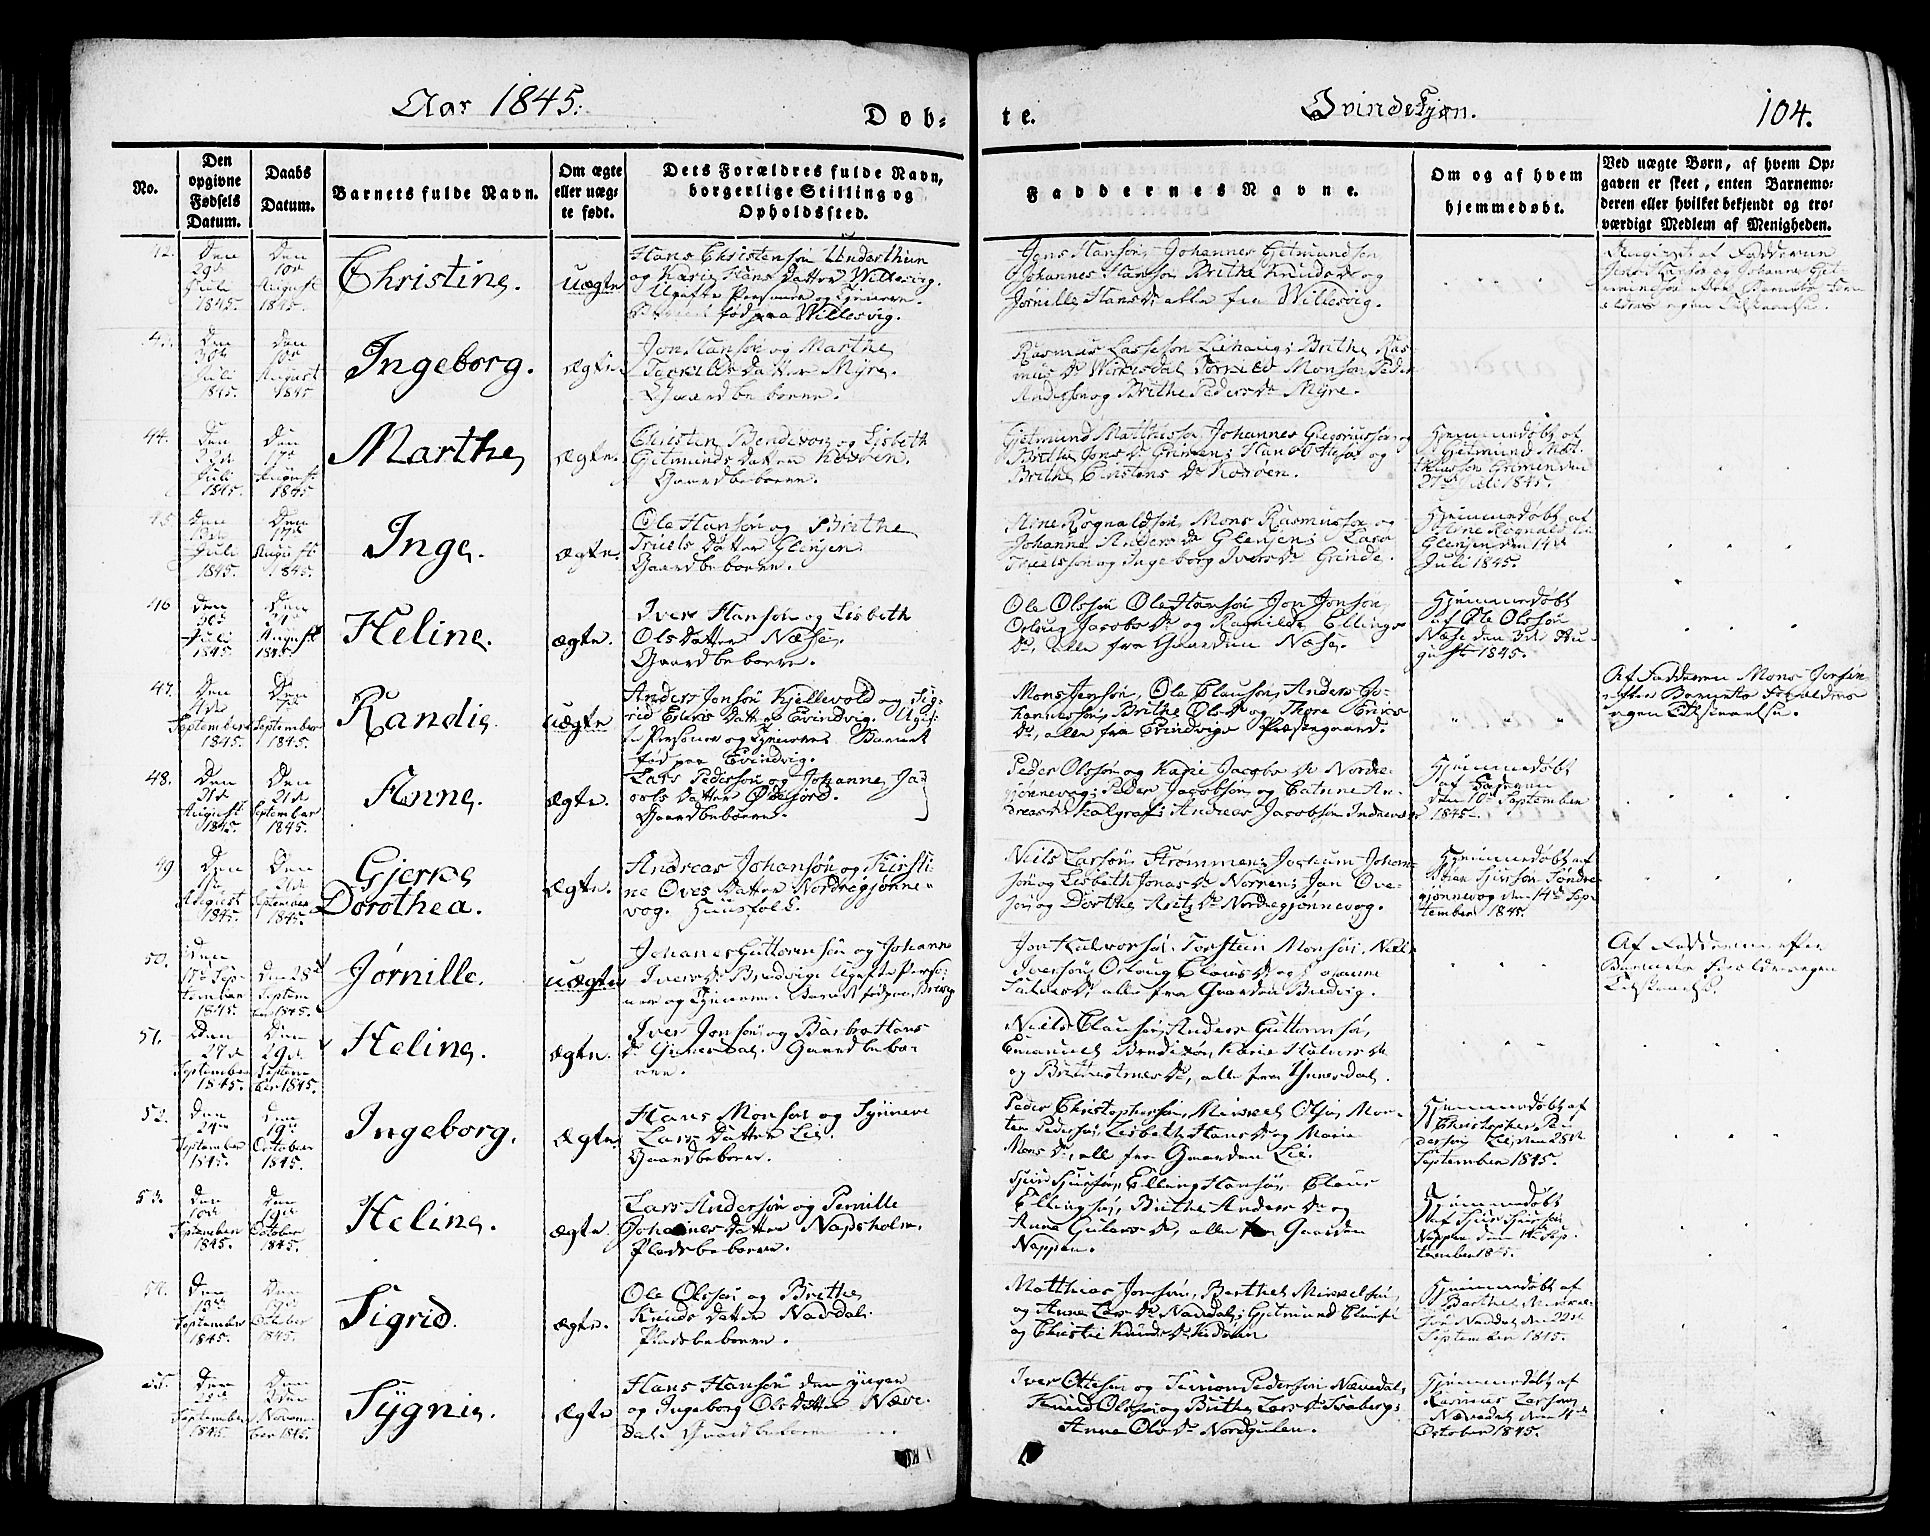 Aar 1845.
Døb-
te.
Qvindekjøn.
104.
No.
Den opgivne Fødsels Datum.
Daabs Datum.
Barnets fulde Navn.
Om ægte eller uægte født.
Dets Forældres fulde Navn, borgerlige Stilling og Opholdssted.
Faddernes Navne.
Om og af hvem hjemmedøbt.
Ved uægte Børn, af hvem Opgaven er skeet, enten Barnemoderen eller hvilket bekjendt og troværdigt Medlem af Menigheden.
42.
Den
29de
Juli
1845.
Den
10de
August
1845.
Christine.
uægte
Hans Christensøn Underthun
og Karie Hans Datter Willesvig.
Ugifte Personer og Tjenere.
Barnet født paa Willesvig.
Jens Hansøn, Johannes Gjetmundsøn
Johannes Hansøn Brithe Knuds Dr og
Jørnille Hans Dr alle fra Willesvig.
Angivet af Fadderne
Jens Hansøn og Johannes Gjet-
mundsøn efter Barnets For-
ældres egen Tilstaaelse.
43.
Den
30te
Juli
1845.
Den
10de
August
1845.
Ingeborg.
ægte.
Jon Hansøn og Marthe
Torkilds Datter Myre.
Gaardbeboere.
Rasmus Lassesøn Liehaug; Brithe Ras-
mus Dr Wirkesdal Torkild Monsøn Peder
Andersøn og Brithe Peders Dr Myre.
44.
Den
22de
Juli
1845.
Den
17de
August
1845
Marthe,
ægte.
Christen Bendixøn og Lisbeth
Gjetmunds Datter Korsøen.
Gaardbeboere.
Gjetmund Matthiessøn, Johannes Gregoriussøn og
Brithe Jons Dr Grimen; Hans Ottesøn og
Brithe Christens Dr Korsøen.
Hjemmedøbt af
Gjetmund Mat-
thiassøn Grimen den
27de Juli 1845.
45
Den
13de
Juli
1845.
Den
17de
August
1845.
Inge.
ægte.
Ole Hansøn og Brithe
Truels Datter Glenjen
Gaardbeboere.
Arne Rognaldsøn, Mons Rasmussøn og
Johanne Anders Dr Glenjen; Lars
Truelssøn og Ingeborg Ivers Dr Grinde.
Hjemmedøbt af
Arne Rognaldsøn
Glenjen den 14de
Juli 1845.
46
Den
30te
Juli
1845.
Den
August
1845.
Heline.
ægte.
Iver Hansøn og Lisbeth
Ols Datter Næse,
Gaardbeboere.
Ole Olssøn Ole Hansøn, Jon Jonsøn,
Orloug Jacobs Dr og Ragnilde Ellings
Dr, alle fra Gaarden Næse.
Hjemmedøbt
af Ole Olssøn
Næse den 3de Au-
gust 1845.
47.
Den
4de
September
1845.
Den
7de
September
1845.
Randie.
uægte
Anders Jonsøn Kjellevold og Sig-
rid Ellers Datter Evindvig. Ugif-
te Personer og Tjenere. Barnet
født paa Evindvig.
Mons Jensøn, Ole Clausøn, Anders Jo-
hannessøn, Brithe Ols Dr og Thore Erics
Dr, alle fra Evindvigs Præstegaard.
Af Fadderen Mons Jensøn
efter Barnets Forældres
egen Tilstaaelse.
48.
Den
21de
August
1845.
Den
21de
September
1845.
Anne.
ægte.
Lars Pedersøn og Johanne Ja-
cobs Datter Ødefjord.
Gaardbeboere.
Peder Olssøn og Karie Jacobs Dr Nordre-
gjønnevog; Peder Jacobsøn og Catrine An-
dreas Dr Kalgraf; Andreas Jacobsøn Indrevær
Hjemmedøbt
af Faderen
den 10de September
1845.
49
Den
August
1845.
Den
21de
September
1845.
Gjerte
Dorothea.
ægte.
Andreas Johansøn og Kirsti-
ne Oves Datter Nordregjønne-
vog. Huusfolk.
Niels Larsøn, Strømmen; Jochum Johan-
søn og Lisbeth Jonas Dr Nornen; Jan Ove-
søn og Dorthe Aritz Dr Nordregjønnevog.
Hjemmedøbt af
Stian Sjursøn Søndre
gjønnevog den 14de Sep-
tember 1845.
50.
Den
17de Sep-
tember
1845.
Den 28de
Septem
ber 1845.
Jørnille.
uægte
Johanes Guttormsøn og Johanne
Ivers Dr Bredvig. Ugifte Perso-
ner og Tjenere. Barnet født paa Bredvig
Jon Halvorsøn. Torstein Monsøn, Niels
Iversøn, Orloug Claus Dr og Johanne
Halvors Dr, alle fra Gaarden Bredvig.
Af Fadderne efter
Barnets Forældres egen
Tilstaaelse.
51.
Den
27de
September
1845.
Den
29de
Septem-
ber 1845.
Heline.
ægte.
Iver Jonsøn og Barbra Hans
Dr Ynnesdal. Gaardbebo-
ere.
Niels Clausøn, Anders Guttormsøn,
Emanuel Bendixøn, Karie Halvors Dr
og Brithe Arnes Dr, alle fra Ynnesdal.
52.
Den
24de
September
1845.
Den
19de
October
1845.
Ingeborg.
ægte.
Hans Monsøn og Synneve
Lars Datter Lie.
Gaardbeboere.
Peder Christophersøn, Mikkel Olsøn, Mor-
ten Pedersøn, Lisbeth Hans Dr og Marie
Mons Dr, alle fra Gaarden Lie.
Hjemmedøbt af
Christopher Pe-
dersøn Lie, den 28de
September 1845.
53.
Den
10de
September
1845.
Den
19de
October
1845.
Heline.
ægte.
Lars Andersøn og Pernille
Johannes Datter Napsholm.
Pladsbeboere.
Sjur Sjursøn, Elling Hansøn, Claus
Ellingsøn, Brithe Anders Dr og
Anne Gulaks Dr, alle fra Gaarden
Nappen.
Hjemmedøbt
af Sjur Sjursøn
Nappen den 14de Sep-
tember 1845.
54.
Den
13de
September
1845.
Den
19de
October
1845.
Sigrid.
ægte.
Ole Olssøn og Brithe
Knuds Datter Nævdal.
Pladsbeboere.
Matthias Jonsøn, Berthel Mikkelsøn,
og Anne Lars Dr Nævedal; Gjetmund Clausøn
og Christie Knuds Dr Kidøen
Hjemmedøbt af
Berthel Mikkel-
søn Nævdal den 22de
September 1845.
55.
Den
September
1845.
Den
2den
Novem-
ber 1845.
Sygnie.
ægte
Hans Hansøn den yngre
og Ingeborg Ols Datter Næve-
dal. Gaardbeboere
Iver Ottesøn og Simon Pedersøn Nævedal,
Knud Olssøn og Brithe Lars Dr Fraberg;
Anne Ols Dr Nordgulen.
Hjemmedøbt af
Rasmus Larsøn
Nævedal, den 4de
October 1845.